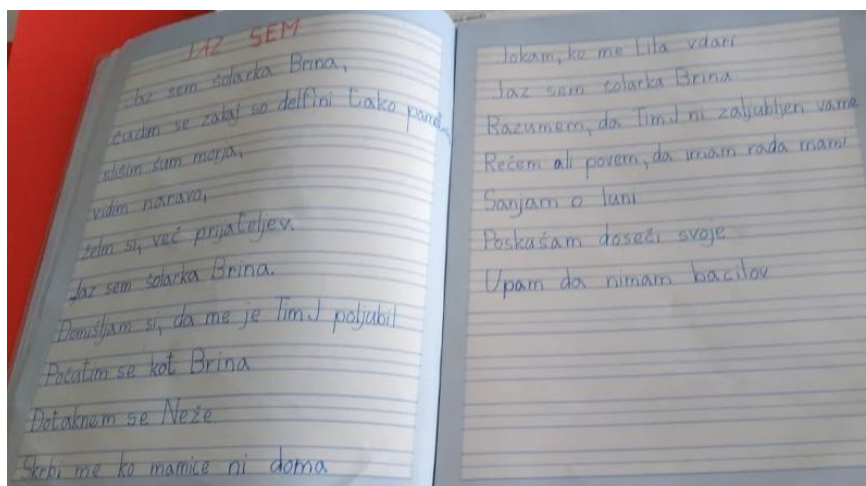 JAZ SEM
Jaz sem šolarka Brina,
čudim se zakaj so delfini tako
slišim šum morja,
vidim naravo,
želim si, več prijateljev.
Jaz sem šolarka Brina.
Domišljam si, da me je Tim J poljubil
Počutim se kot Brina
Dotaknem se Neže
Skrbi me ko mamice ni doma
Jokam, ko me Lita vdari
Jaz sem šolarka Brina
Razumem, da Tim J ni zaljubljen vame
Rečem ali povem, da imam rada mami
Sanjam o luni
Poskušam doseči svoje
Upam da nimam bacilov